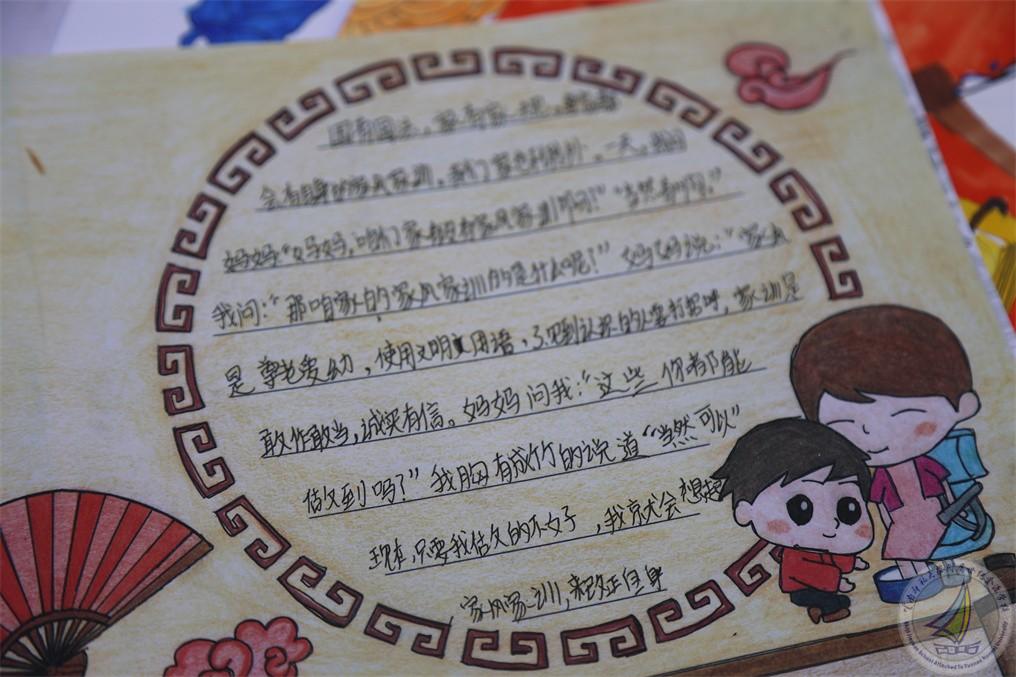 国有国法，家有家规，
会有自己的家风家训，我们家也不例外。一天，我问
妈妈："妈妈，咱们家有没有家风家训阿？""当然有啊。"
我问："那咱家的家风家训的是什么呢？"妈妈说："家风
是尊老爱幼，使用文明用语，见到认识的人要打招呼，家训是
敢作敢当，诚实有信。妈妈问我："这些你都能
做到吗？"我胸有成竹的说道"当然可以"
现在，只要我做的不好，我就会想起
家风家训，来改正自身